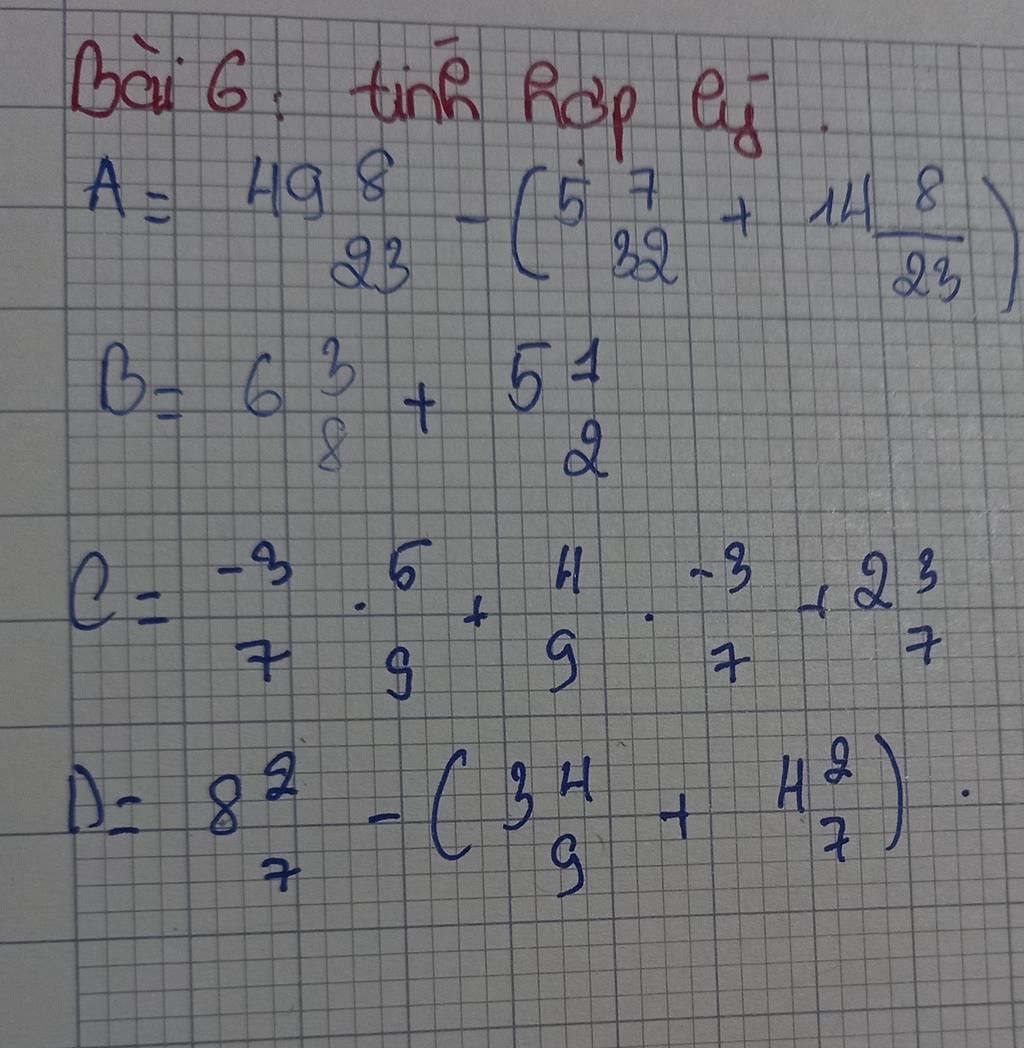 Bài 6: tính hợp lý.
A = 49 8/23 - (5 7/32 + 14 8/23)
B = 6 3/8 + 5 1/2
C = -3/7 . 5/9 + 4/9 . -3/7 + 2 3/7
D = 8 2/7 - (3 4/9 + 4 2/7).